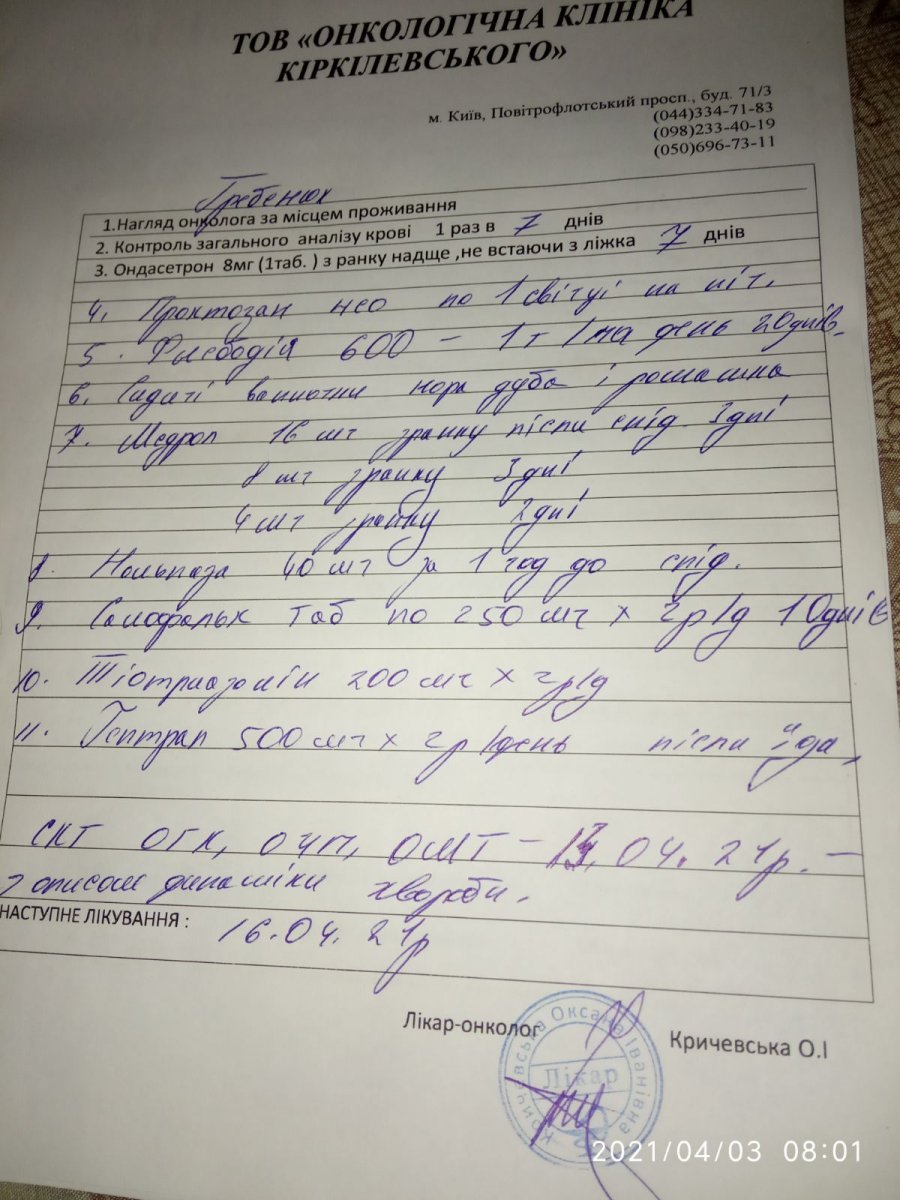 ТОВ «ОНКОЛОГІЧНА КЛІНІКА
КІРКІЛЕВСЬКОГО»
м. Київ, Повітрофлотський просп., буд. 71/3
(044)334-71-83
(098)233-40-19
(050)696-73-11
Гребенюк
1.Нагляд онколога за місцем проживання
2. Контроль загального аналізу крові 1 раз в 7 днів
3. Ондасетрон 8мг (1таб. ) з ранку надще ,не встаючи з ліжка 7 днів
4. Проктозан нео по 1 світці на ніч.
5. Флебодія 600 – 1т 1/на день 20днів.
6. Сидячі ванночки кора дуба і ромашка
7. Медрол 16 мг зранку після снід. 3дні
8 мг зранку 3дні
4 мг зранку 2дні
8. Нольпаза 40 мг за 1 год до снід.
9. Салофальк таб по 250 мг х 2р/д 10днів
10. Тіотриазолін 200 мг х 2р/д
11. Гептрал 500 мг х 2р/день після їда,
СКТ ОГК, ОЧП, ОМТ – 04. 21р. –
з описом динаміки хвороби.
НАСТУПНЕ ЛІКУВАННЯ : 16.04.21р
Лікар-онколог Кричевська О.І
Кричевська Оксана Іванівна
Лікар
2021/04/03 08:01